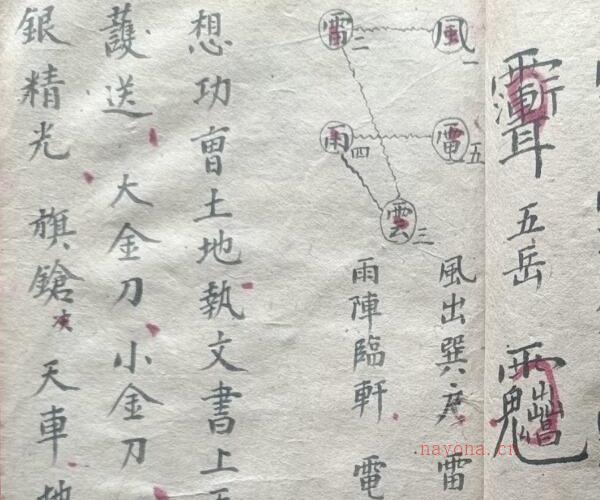 五岳
風一
雷二
雲三
雨四
電五
風出巽方 雷
雨陣臨軒 電
想功曹土地執文書上
護送 大金刀 小金刀
銀精光 旗鎗 天車 地
nayona.cn